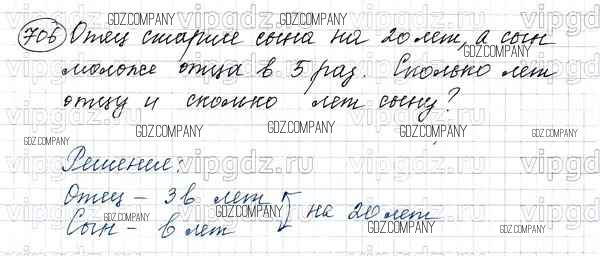 706 Отец старше сына на 20 лет, а сын
моложе отца в 5 раз. Сколько лет
отцу и сколко лет сыну?
Решение:
Отец – 3в лет
Сын – в лет
на 20 лет
GDZ.COMPANY
vipgdz.ru